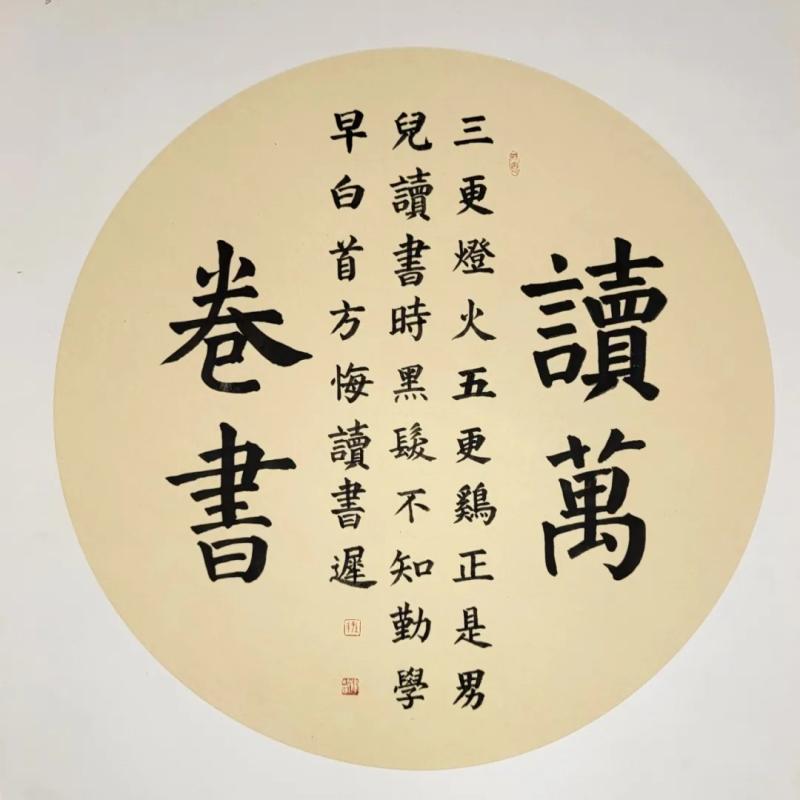 讀萬
三更燈火五更鷄正是男
兒讀書時黑髮不知勤學
早白首方悔讀書遲
卷書